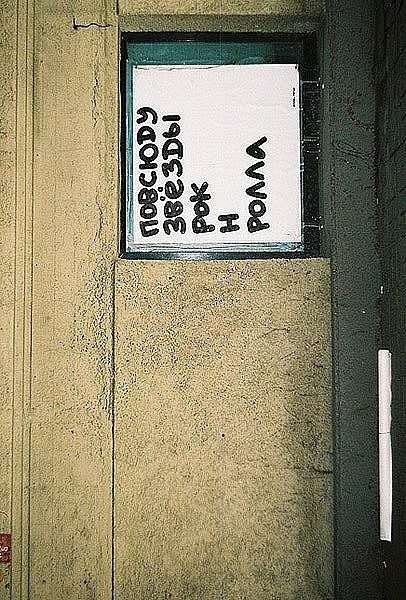 ПОВСЮДУ
ЗВЁЗДЫ
РОК
Н
РОЛЛА